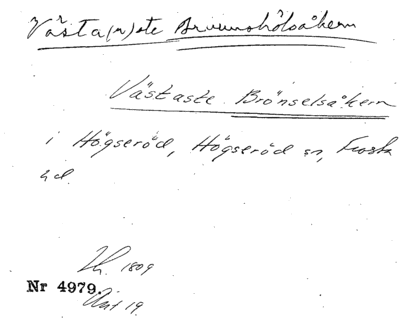 Västa(r)ste Bruunshölsåkern
Västaste Brönselsåkern
i Högseröd, Högseröd sn, Frosta
hd.
Lh. 1809
Nr 4979.
Akt 19.